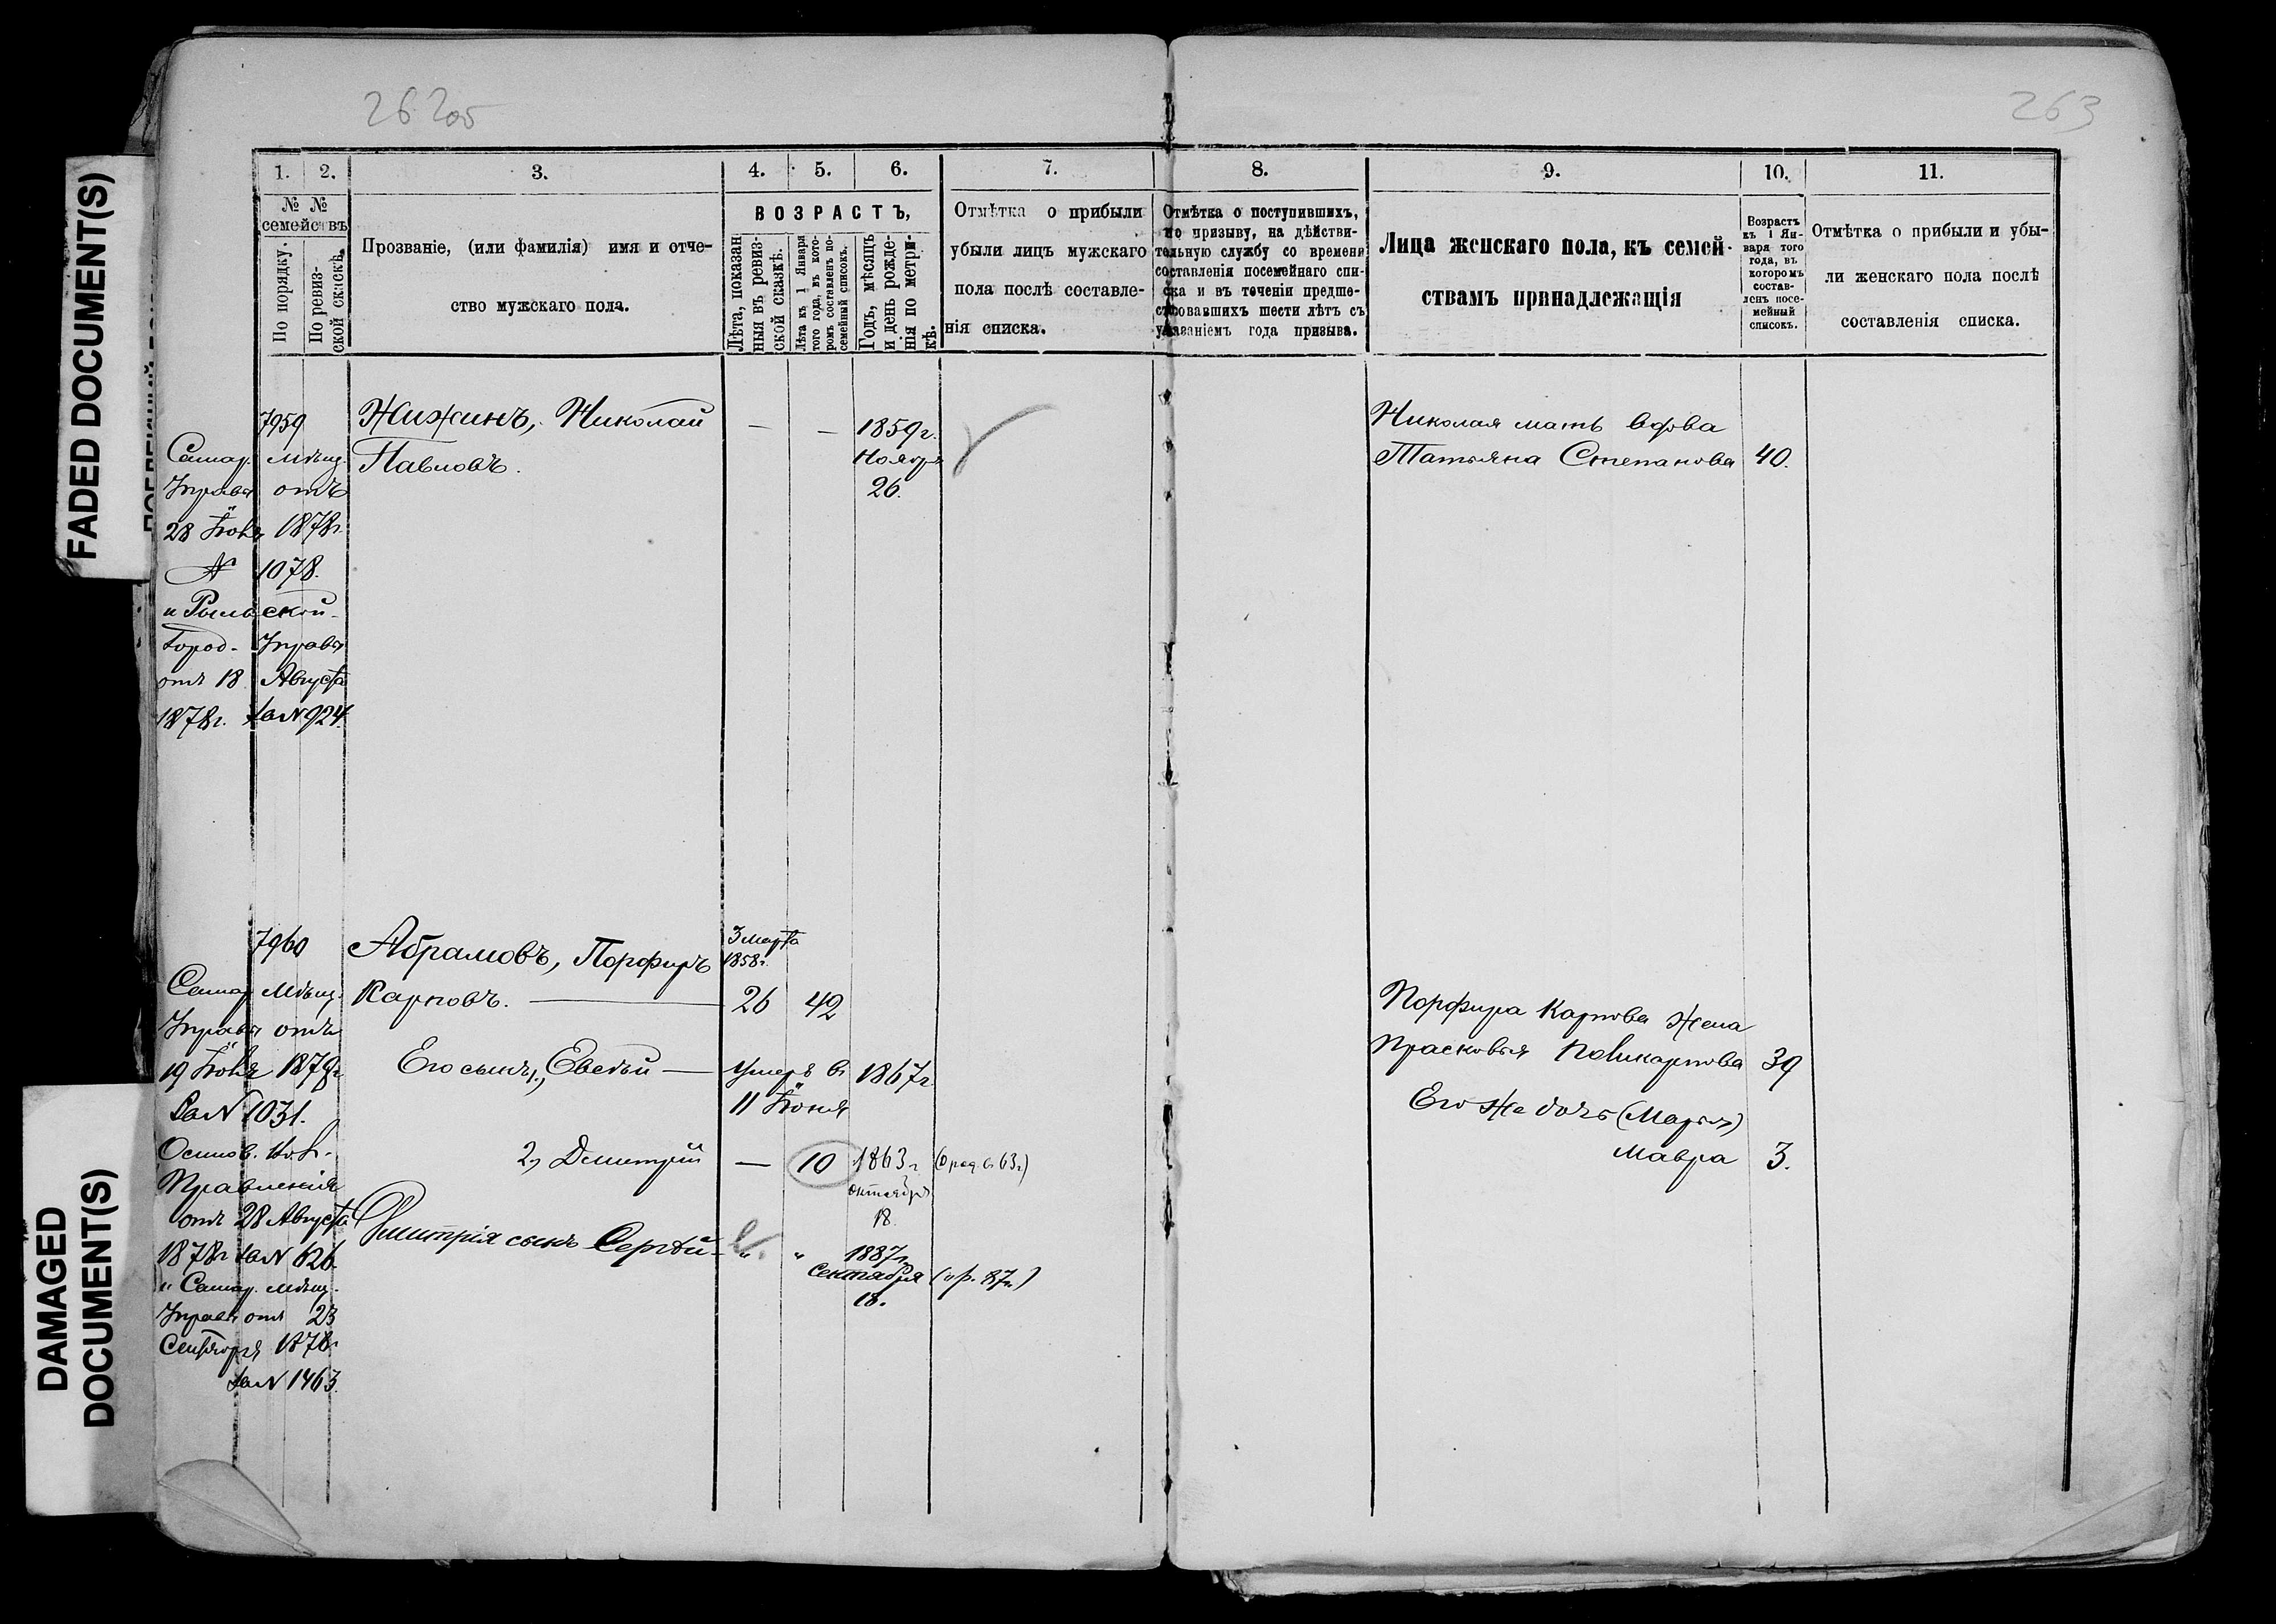 FADED DOCUMENT(S)
DAMAGED
DOCUMENT(S)
262об
263
1.
2.
3.
4.
5.
6.
7.
8.
9.
10.
11.
№ №
семействъ
По порядку.
По ревиз-
ской сказкѣ.
Прозваніе, (или фамилія) имя и отче-
ство мужскаго пола.
ВОЗРАСТЪ,
Лѣта, показан
ныя въ ревиз-
ской сказкѣ.
Лѣта къ 1 Января
того года, въ кото-
ромъ составленъ по-
семейный списокъ.
Годъ, мѣсяцъ
и день рожде-
нія по метри-
кѣ.
Отмѣтка о прибыли
убыли лицъ мужскаго
пола послѣ составле-
нія списка.
Отмѣтка о поступившихъ,
по призыву, на дѣйстви-
тельную службу со времени
составленія посемейнаго спи-
ска и въ теченіи предше-
ствовавшихъ шести лѣтъ съ
указаніемъ года призыва.
Лица женскаго пола, къ семей-
ствамъ принадлежащія
Возрастъ
къ 1 Ян-
варя того
года, въ
которомъ
состав-
ленъ посе-
мейный
списокъ.
Отмѣтка о прибыли и убы-
ли женскаго пола послѣ
составленія списка.
7959
Самар. Мѣщ.
Управы отъ
28 Іюня 1878г
№ 1078.
и Рыльской
Город. Управы
отъ 18 Августа
1878г. за № 924.
Жижинъ, Николай
Павловъ.
— —
1859г.
Ноября
26.
Николая мать вдова
Татьяна Степанова 40.
7960
Самар Мѣщ.
Управы отъ
19 Іюня 1878г
За № 1031.
Основ. Вол.
Правленія
отъ 28 Августа
1878г за № 626
и Самар. Мѣщ.
Управы отъ 23
Сентября 1878г
за № 1463.
Абрамовъ, Порфиръ
Карповъ. —
3 Марта
1858г.
26 42
Его сынъ 1, Евсѣй — умеръ въ 1867г
11 Іюня
2, Дмитрій — 10 1863г (о рад. в 63г)
октября
18.
Дмитрія сынъ Сергѣй - " " 1887г.
Сентября (о р. 87г.)
18.
Порфира Карпова жена
Прасковья Поликарпова 39
Его же дочь (Марья)
Мавра 3.